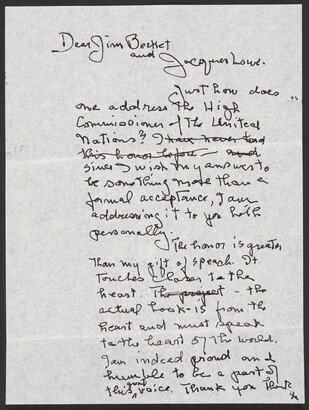 Dear Jim Becket
and
Jacques Lowe.
Just how does
one address the High
Commissioner of the United
Nations? I have never had
this honor before — and
since I wish my answer to
be something more than a
formal acceptance, I am
addressing it to you both
personally.
The honor is greater
than my gift of speech. It
touches closer to the
heart. The project - the
actual book - is from the
heart and must speak
to the heart of the world.
I am indeed proud and
humble to be a part of
this great voice. Thank you